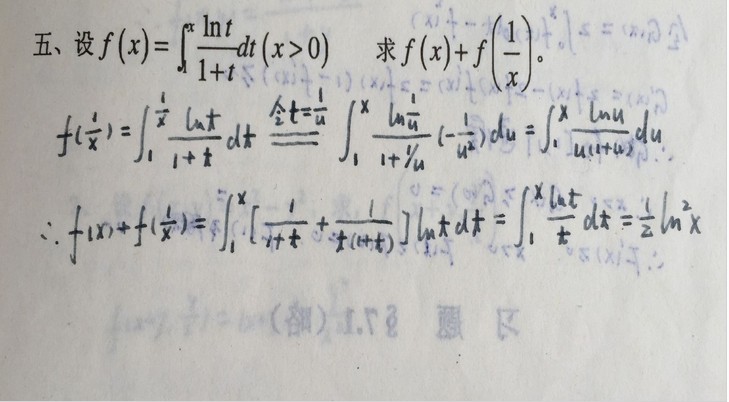 五、设 f(x)=∫₁ˣ ln t/(1+t) dt (x>0)　求 f(x)+f(1/x)。
f(1/x)=∫₁^(1/x) ln t/(1+t) dt 令t=1/u ══ ∫₁ˣ ln(1/u)/(1+1/u) (-1/u²)du=∫₁ˣ ln u/(u(1+u)) du
∴ f(x)+f(1/x)=∫₁ˣ[1/(1+t)+1/(t(1+t))]ln t dt=∫₁ˣ ln t/t dt=1/2 ln²x
习 题 §7.1（略）